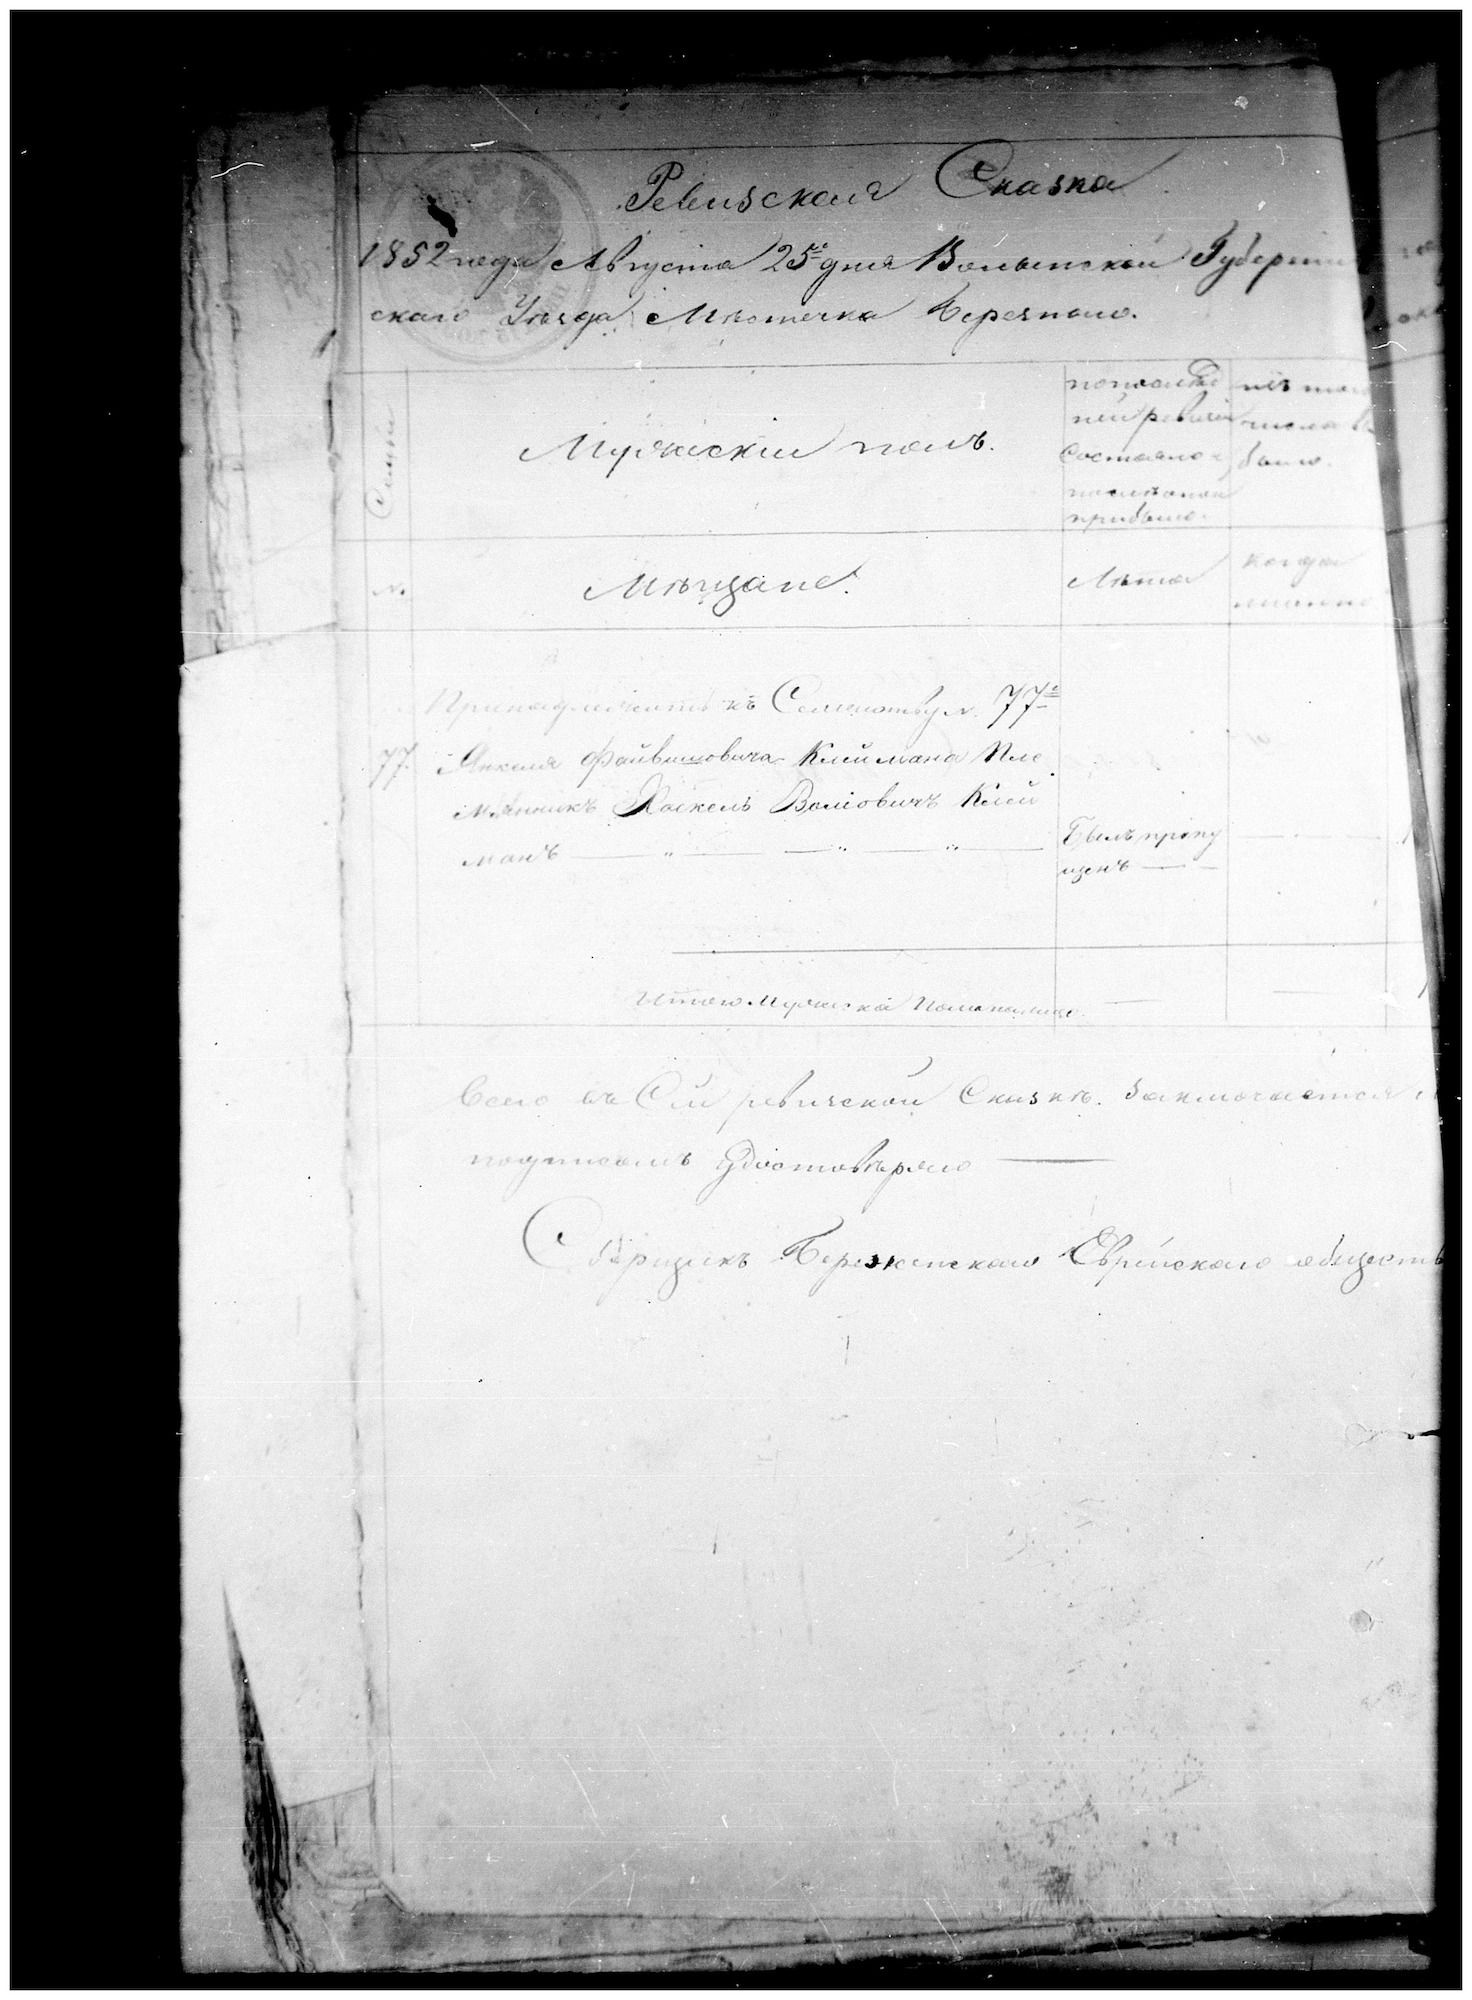 Ревизская Сказка
1852 года Августа 25го дня Волынской Губернии
скаго Уѣзда Мѣстечка Березного.
Семьи
Мужескій полъ.
по послѣд
ней ревизіи
состояло и
послѣ оной
прибыло.
изъ того
числа вы
было.
№
Мѣщане.
Лѣта
Когда
именно
Принадлежитъ къ Семейству № 77й
77. Янкеля Файвишовича Клиймана Пле
мянникъ Хаскель Волiовичъ Клий
манъ
Былъ пропу
щенъ
Итого Мужеска Пола налицо
Всего въ Сей ревизской Сказкѣ заключается
подписомъ удостовѣряю
Сборщикъ Березненскаго Еврейскаго обществ